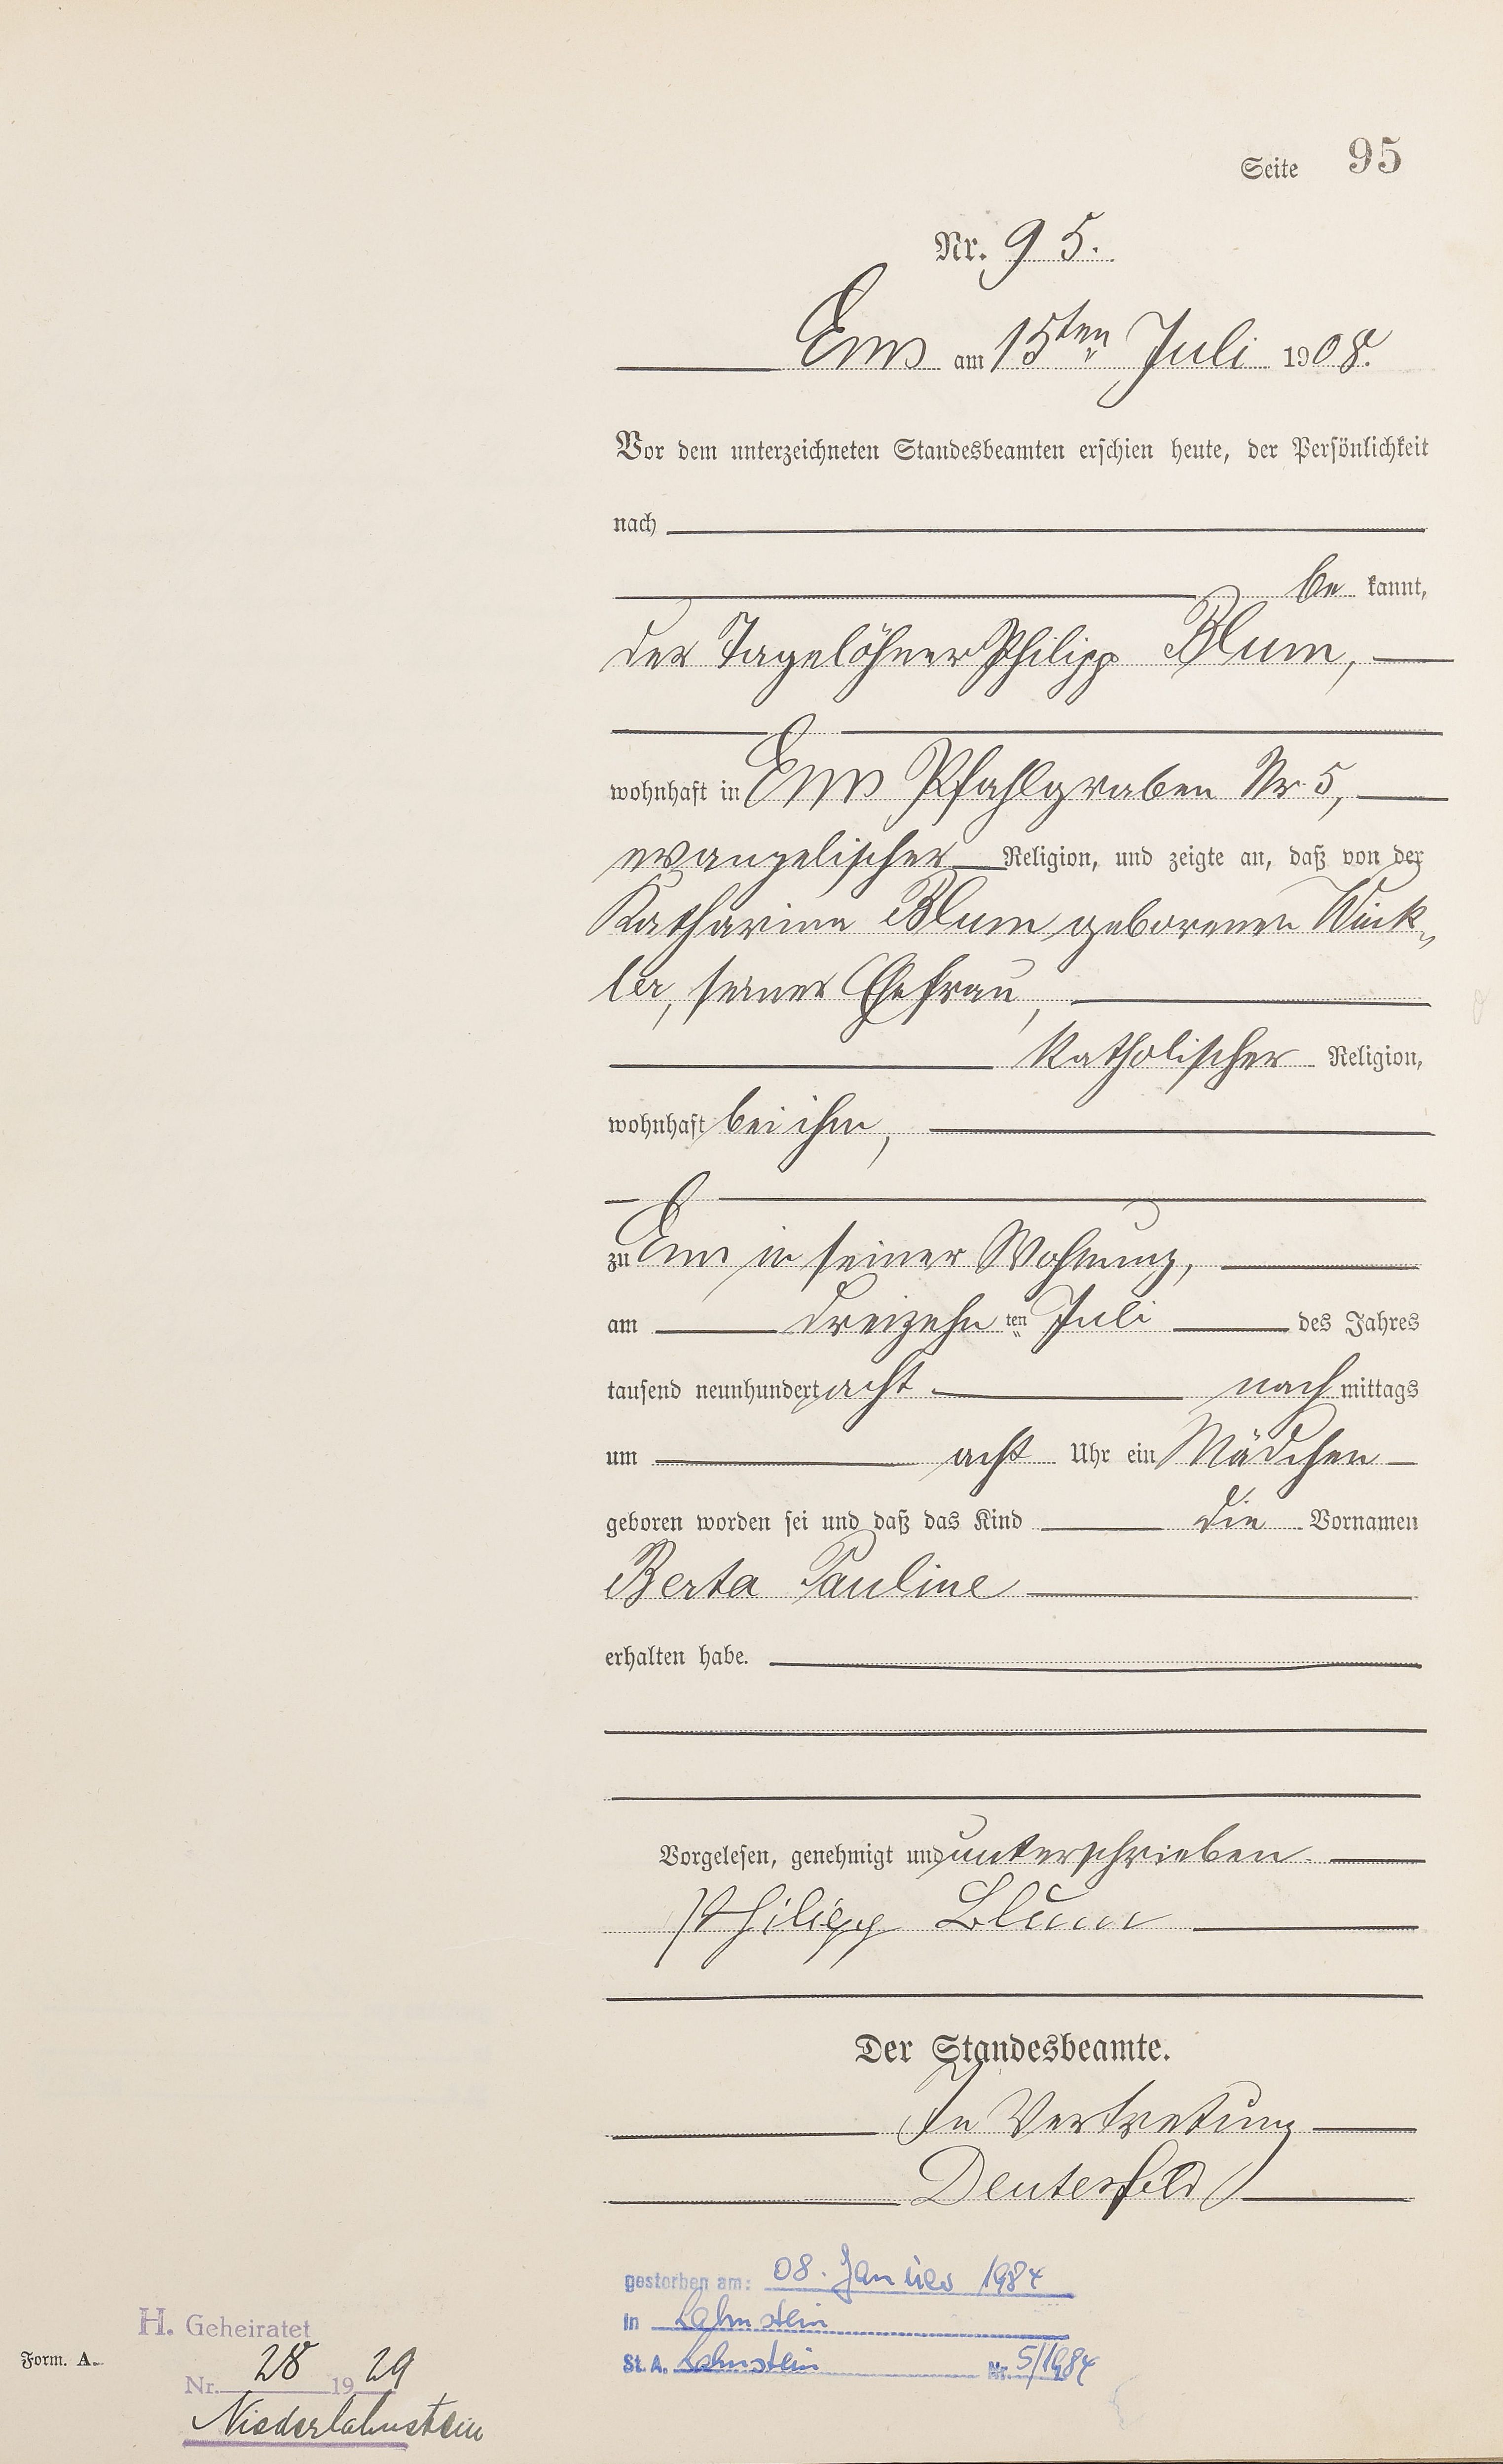 Seite 95
Nr. 95.
Ems am 15ten Juli 1908.
Vor dem unterzeichneten Standesbeamten erschien heute, der Persönlichkeit
nach
be kannt,
der Tagelöhner Philipp Blum,
wohnhaft in Ems Pfahlgraben Nr 5,
evangelischer Religion, und zeigte an, daß von der
Katharina Blum geborenen Wink-
ler, seiner Ehefrau,
katholischer Religion,
wohnhaft bei ihm,
zu Ems in seiner Wohnung,
am dreizehn ten Juli des Jahres
tausend neunhundert acht nach mittags
um acht Uhr ein Mädchen
geboren worden sei und daß das Kind die Vornamen
Berta Pauline
erhalten habe.
Vorgelesen, genehmigt und unterschrieben.
Philipp Blum
Der Standesbeamte.
In Vertretung
Deutesfeld
gestorben am: 08. Januar 1984
in Lahnstein
St. A. Lahnstein Nr. 5/1984
H. Geheiratet
Form. A.
Nr. 28 1929
Niederlahnstein